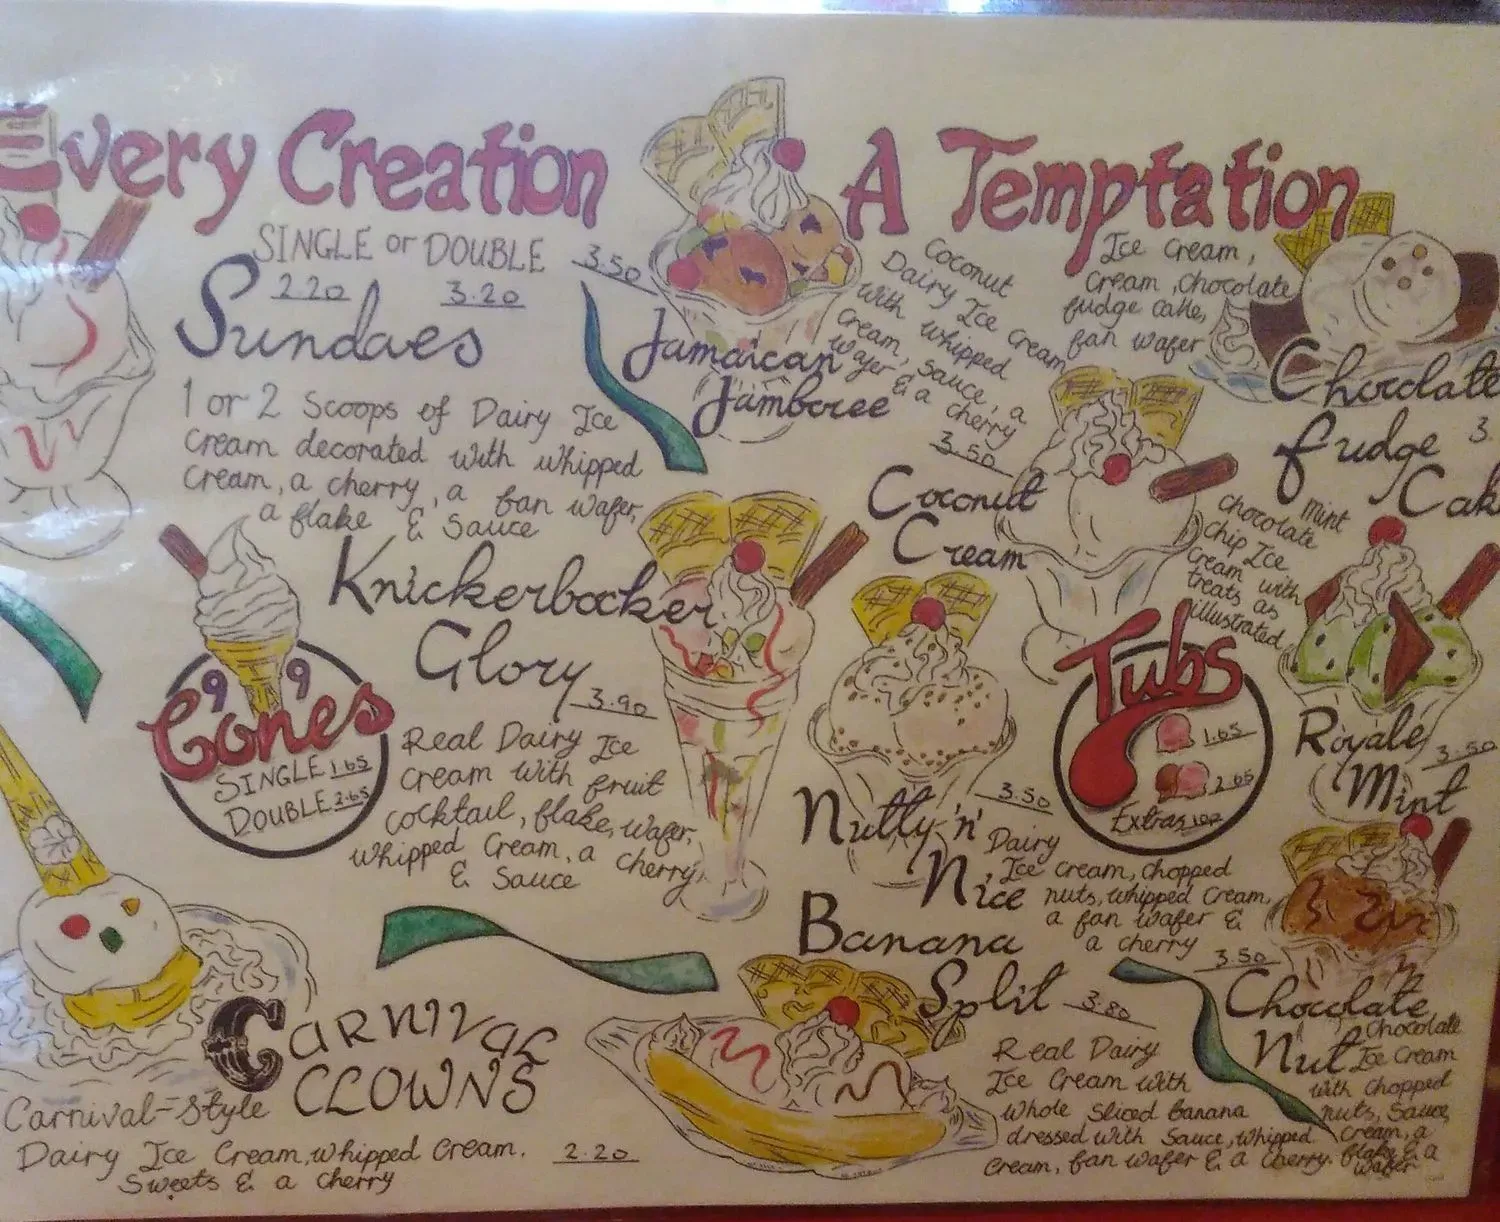 Every Creation
A Temptation
SINGLE or DOUBLE
2.20 3.20
Sundaes
1 or 2 Scoops of Dairy Ice
Cream decorated with whipped
Cream, a cherry, a fan wafer,
a flake & Sauce
3.50
Jamaican
Jamboree
Coconut
Dairy Ice Cream
with whipped
Cream, Sauce, a
wafer & a cherry
3.50
Coconut
Cream
Ice Cream,
Cream, Chocolate
fudge cake,
fan wafer
Chocolate
fudge 3.
Cak
Knickerbocker
Glory
3.90
Real Dairy Ice
Cream with fruit
cocktail, flake, wafer,
whipped Cream, a cherry
& Sauce
99
Cones
SINGLE 1.65
DOUBLE 2.65
Mint
Chocolate
Chip Ice
Cream with
treats as
illustrated
Royale 3.50
Mint
Tubs
1.65
2.65
Extras
Nutty 'n' 3.50
Nice
Dairy
Ice cream, chopped
nuts, whipped Cream,
a fan wafer &
a cherry
Carnival
Clowns
Carnival-Style
Dairy Ice Cream, whipped Cream.
Sweets & a cherry
2.20
Banana
Split 3.80
Real Dairy
Ice Cream with
whole Sliced Banana
dressed with Sauce, whipped
Cream, fan wafer & a cherry.
3.50
Chocolate
Nut
Chocolate
Ice Cream
with chopped
nuts, Sauce,
Cream, a
flake & a
wafer